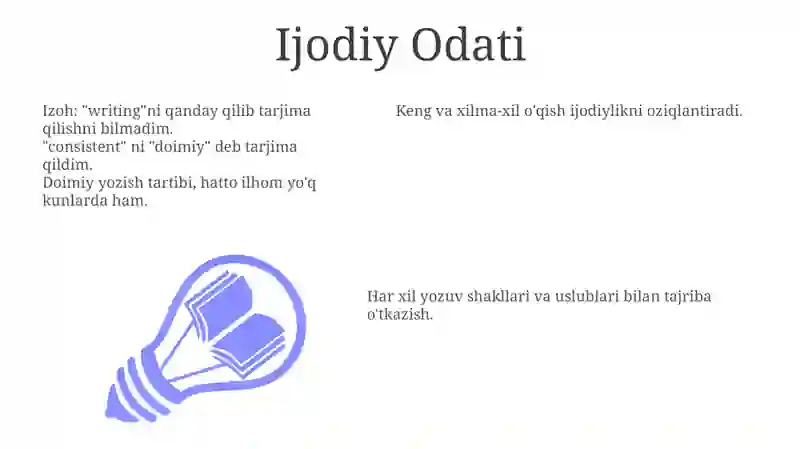 Ijodiy Odati
Izoh: "writing"ni qanday qilib tarjima
qilishni bilmadim.
"consistent" ni "doimiy" deb tarjima
qildim.
Doimiy yozish tartibi, hatto ilhom yo'q
kunlarda ham.
Keng va xilma-xil o'qish ijodiylikni oziqlantiradi.
Har xil yozuv shakllari va uslublari bilan tajriba
o'tkazish.